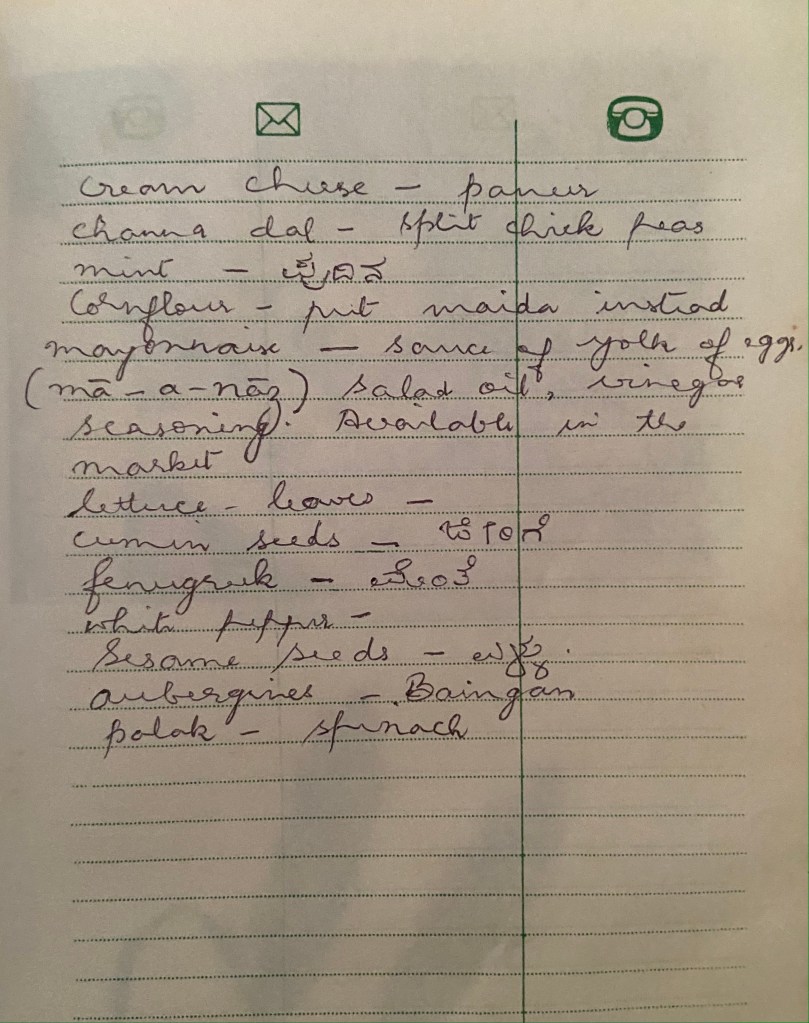 cream cheese – paneer
channa dal – split chick peas
mint – ಪುದಿನ
Cornflour – put maida instead
mayonnaise – sauce of yolk of eggs.
(mā-a-nāz) salad oil, vinegar
seasoning). Available in the
market
lettuce - leaves –
cumin seeds – ಜೀರಿಗೆ
fenugreek – ಮೆಂತೆ
white pepper –
Sesame seeds – ಎಳ್ಳು.
aubergines – Baingan
palak – spinach